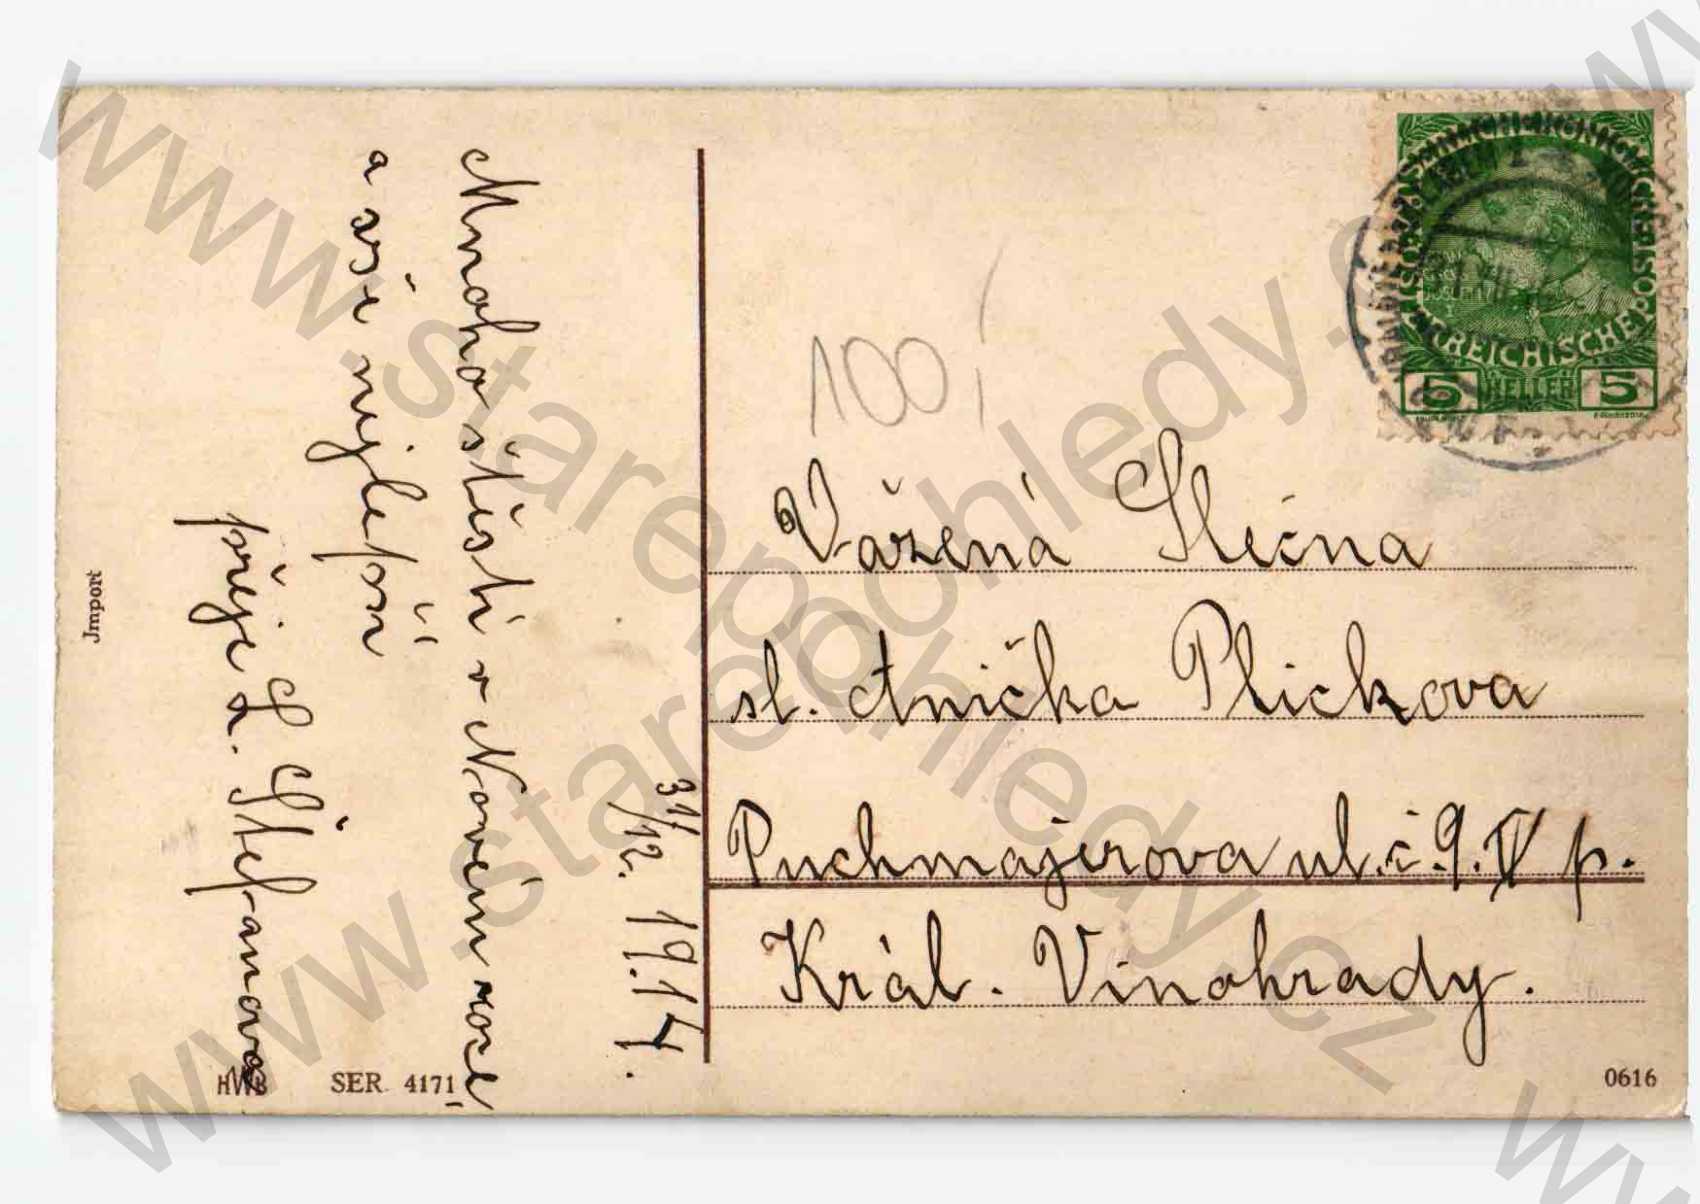 31/12. 1914.
Mnoho štěstí v Novém roce
a vše nejlepší
přeje L. Štefanova
Jmport
HWB SER. 4171
100,
5 HELLER 5
Vážená Slečna
sl. Anička Plickova
Puchmajerova ul. č. 9. IV p.
Král. Vinohrady.
0616
www.starepohledy.cz
www.starepohledy.cz